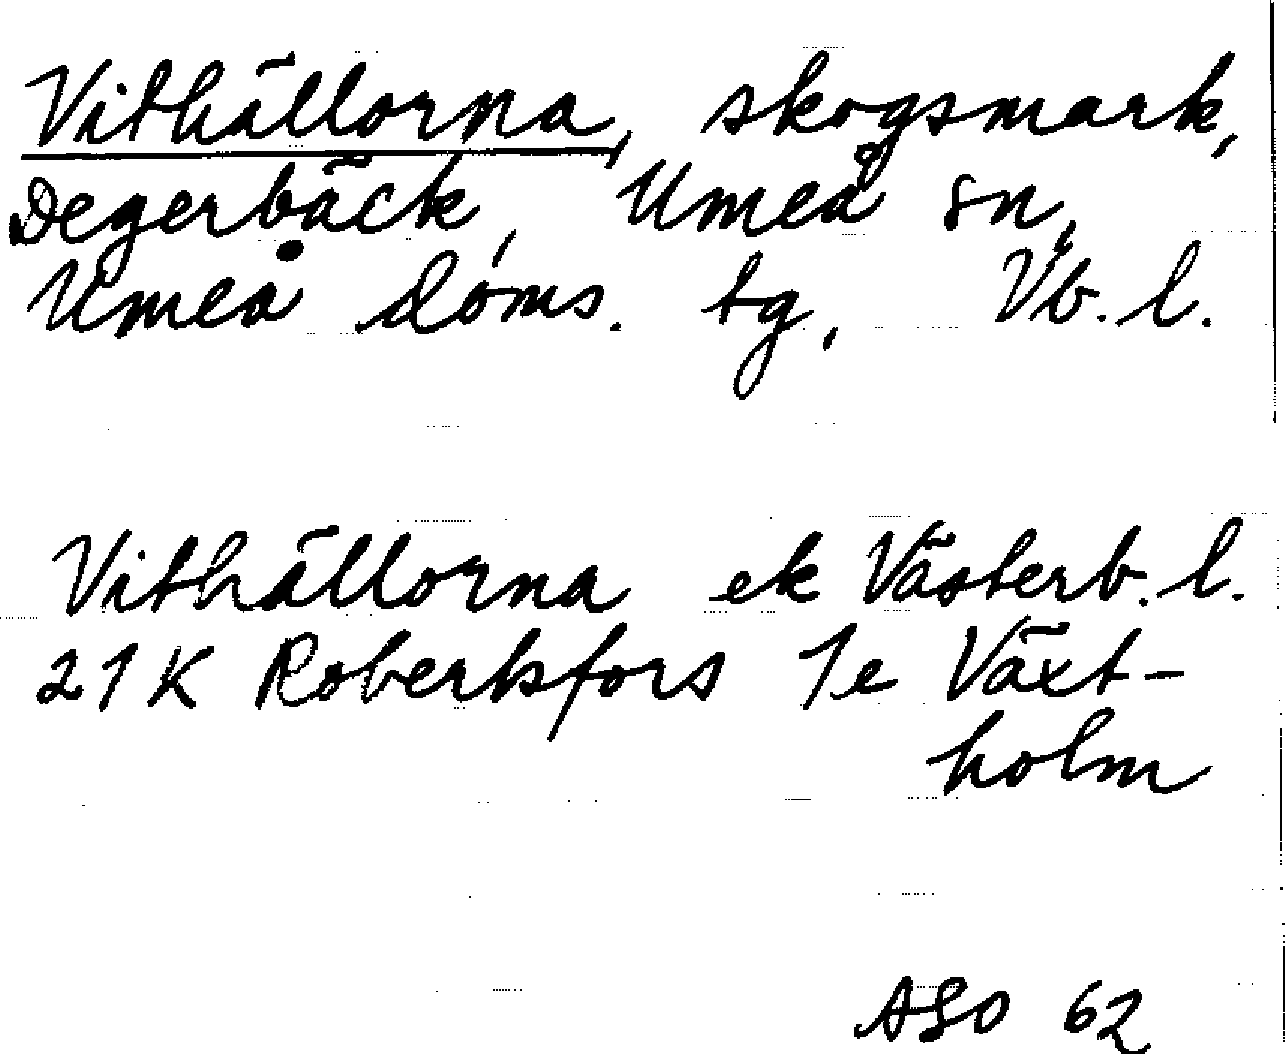 Vithällorna, skogsmark,
Degerbäck, Umeå sn,
Umeå doms. tg, Vb. l.
Vithällorna ek Västerb. l.
21 K Robertsfors 1e Växt-
holm
ASO 62